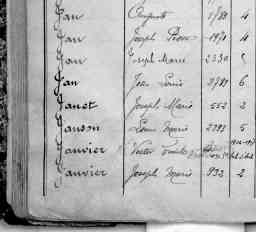 Jan Auguste 1788 4
Jan Joseph Pierre 1970 4
Jan Joseph Marie 2330
Jan Jean Louis 2781 6
Janet Joseph Marie 552 2
Janson Louis Marie 5
Janvier Victor
Janvier Joseph Marie 932 2